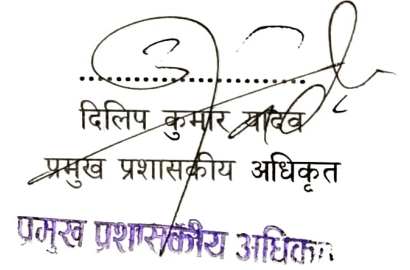 दिलिप कुमार यादव
प्रमुख प्रशासकीय अधिकृत
प्रमुख प्रशासकीय अधिकृत